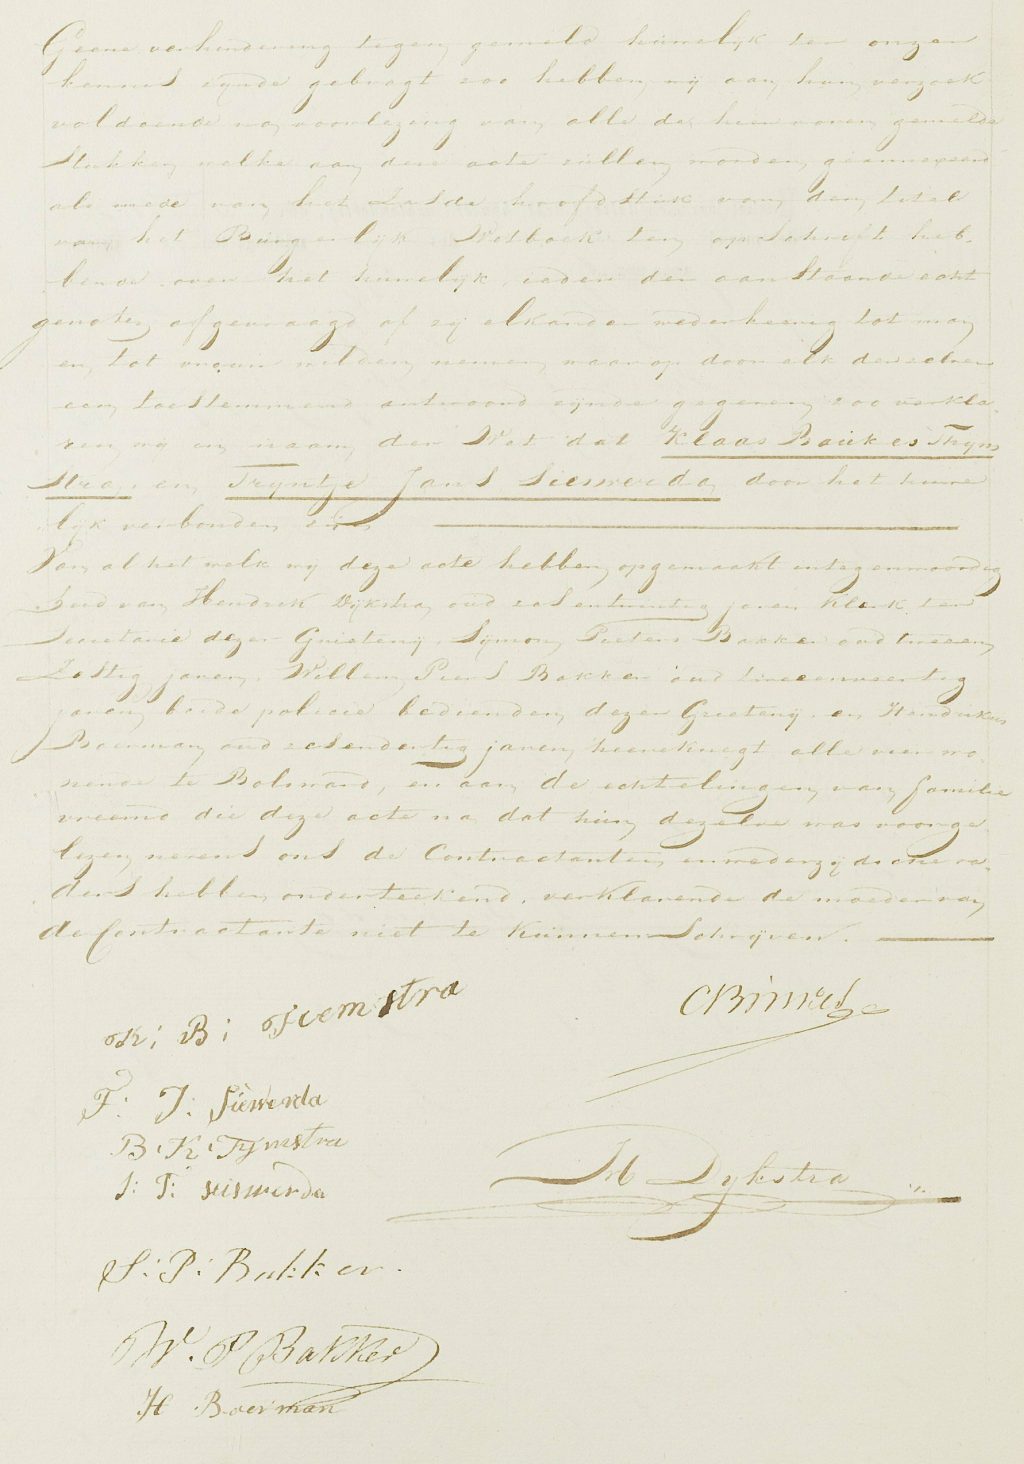 Geene verhindering tegen gemeld huwelijk ter onzer
kennis zijnde gebragt zoo hebben wij aan hun verzoek
voldoende na voorlezing van alle de hier voren gemelde
Stukken welke aan deze acte zullen worden geannexeerd
als mede van het Zesde hoofdstuk van den titel
van het Burgerlijk Wetboek ten opschrift heb-
bende over het huwelijk, ieder der aanstaande echt
genoten afgevraagd of zij elkander wederkeerig tot man
en tot vrouw wilden nemen waarop door elk derzelven
een toestemmend antwoord zijnde gegeven zoo verkla-
ren wij in naam der Wet dat Klaas Baukes Thym
Stra, en Trijntje Jans Sieswerda door het huwe
lijk verbonden zijn
Van al het welk wij deze acte hebben opgemaakt in tegenwoordig
heid van Hendrik Dijkstra oud zes en twintig jaren Klerk ter
Secretarie dezer Grietenij, Sijmon Pieters Bakker oud tweeen
Zestig jaren, Willem Piers Bakker oud tweeenveertig
jaren beide policie bedienden dezer Grietenij en Hendrikus
Boerman oud zesendertig jaren heereknegt alle vier wo-
nende te Bolsward, en aan de echtelingen van familie
vreemd die deze acte na dat hun dezelve was voorge
lezen nevens ons de Contractanten en wederzijdsche va-
ders hebben onderteekend, verklarende de moeder van
de Contractante niet te kunnen Schrijven.
K; B; Tiemstra
T: J: Sieswerda
B. K. Tijmstra
J: T: sieswerda
H Dykstra
S: P: Bakker.
W. P Bakker
H Boerman